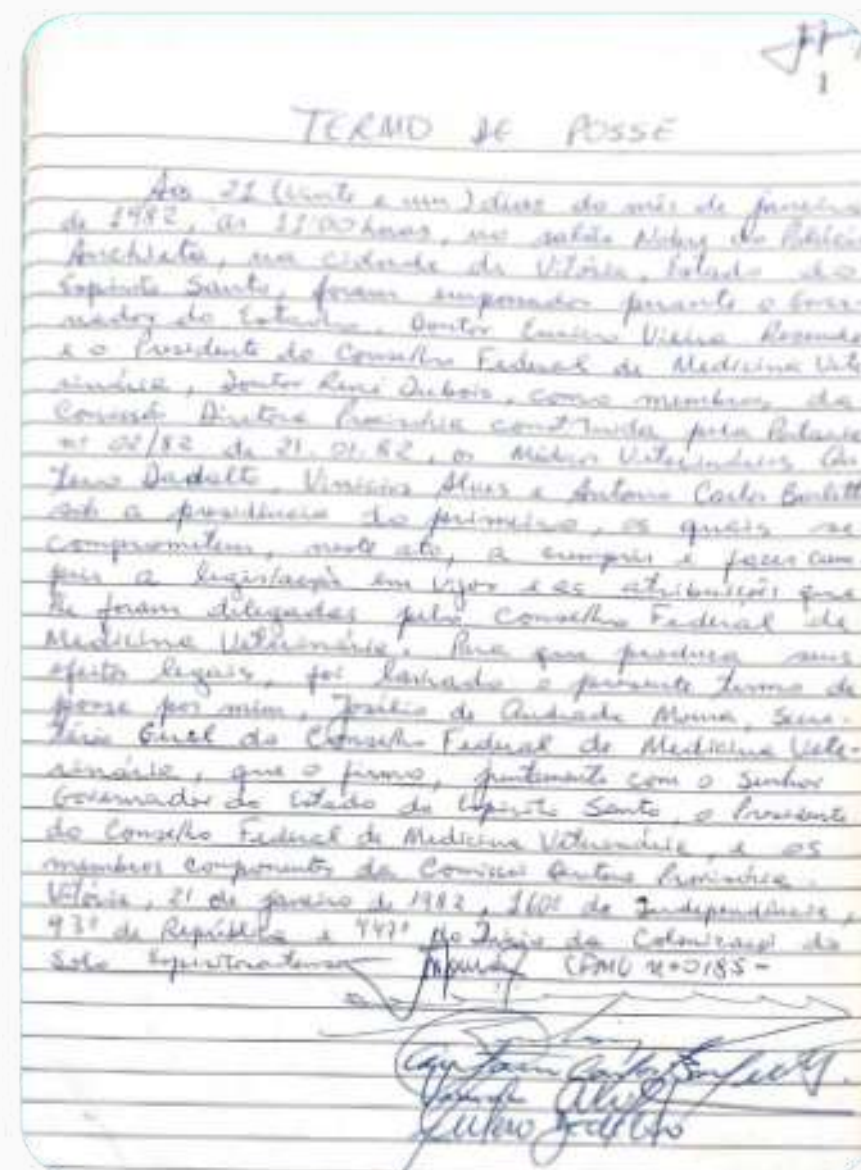 1
TERMO DE POSSE
Aos 21 (vinte e um) dias do mês de janeiro
de 1982, às 11:00 horas, no salão Nobre do Palácio
Anchieta, na cidade de Vitória, Estado do
Espírito Santo, foram empossados perante o Gover
nador do Estado, Doutor Eurico Vieira Rezende
e o Presidente do Conselho Federal de Medicina Vete
rinária, Doutor René Dubois, como membros da
Comissão Diretora Provisória constituida pela Portaria
nº 02/82 de 21.01.82, os Médicos Veterinários Gu
terro Dadalto, Vinicius Alves e Antonio Carlos
sob a presidência do primeiro, os quais se
comprometem, neste ato, a cumprir e fazer cum
prir a legislação em vigor e as atribuições que
lhe foram delegadas pelo Conselho Federal de
Medicina Veterinária. Para que produza seus
efeitos legais, foi lavrado o presente termo de
posse por mim, Josélio de Andrade Moura, Secre-
tário Geral do Conselho Federal de Medicina Vete-
rinária, que o firmo, juntamente com o Senhor
Governador do Estado do Espírito Santo, o Presidente
do Conselho Federal de Medicina Veterinária, e os
membros componentes da Comissão Diretora Provisória.
Vitória, 21 de janeiro de 1982, 160º da Independência,
93º da República e 447º do Início da Colonização do
Solo Espiritosantense Moura CFMV nº 0185-